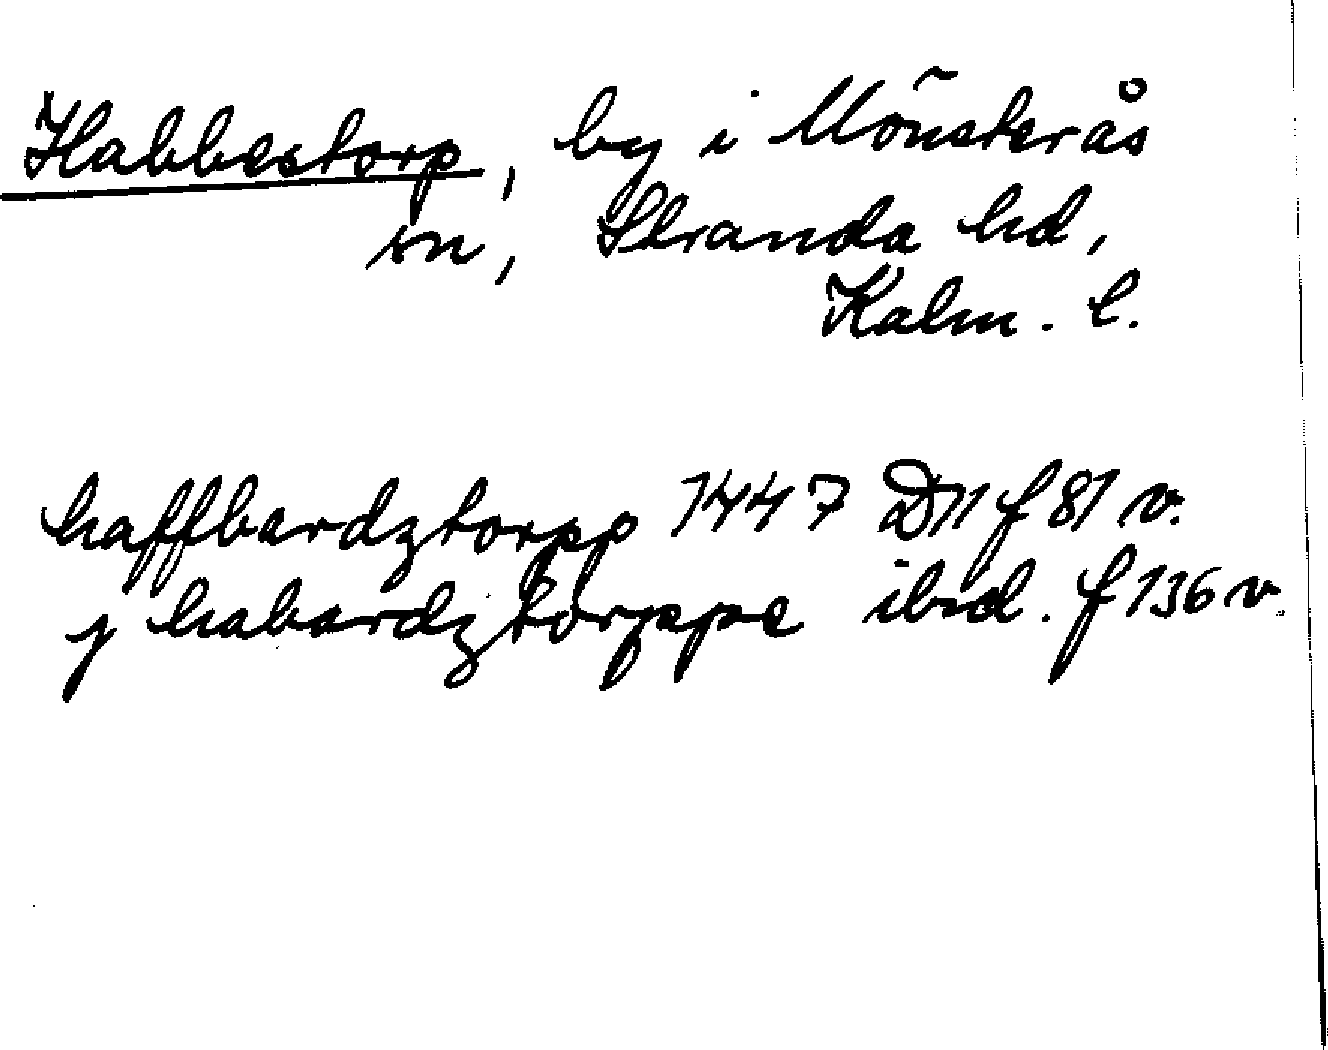 Habbestorp, by i Mönsterås
sn, Stranda hd,
Kalm. l.
haffbardztorpp 1447 D11 f 81 v.
j habardztorppe ibid. f 136 v.